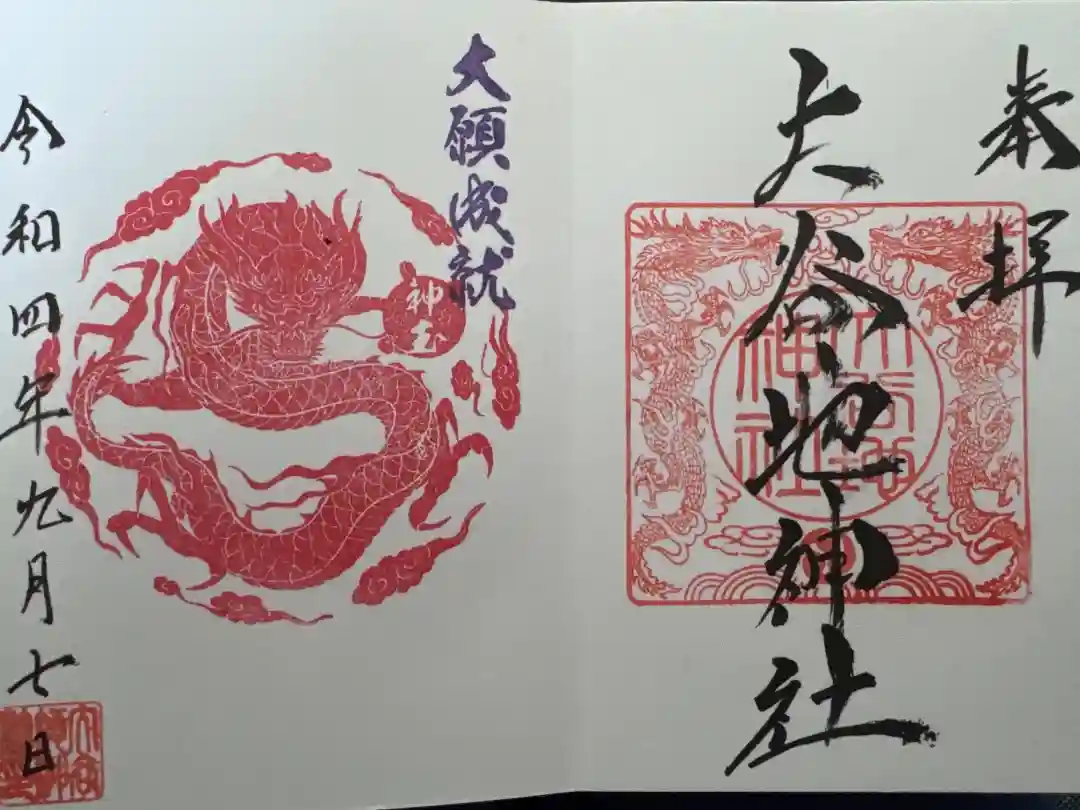 奉拝
大谷地神社
大谷地
神社
大願成就
神玉
令和四年九月七日